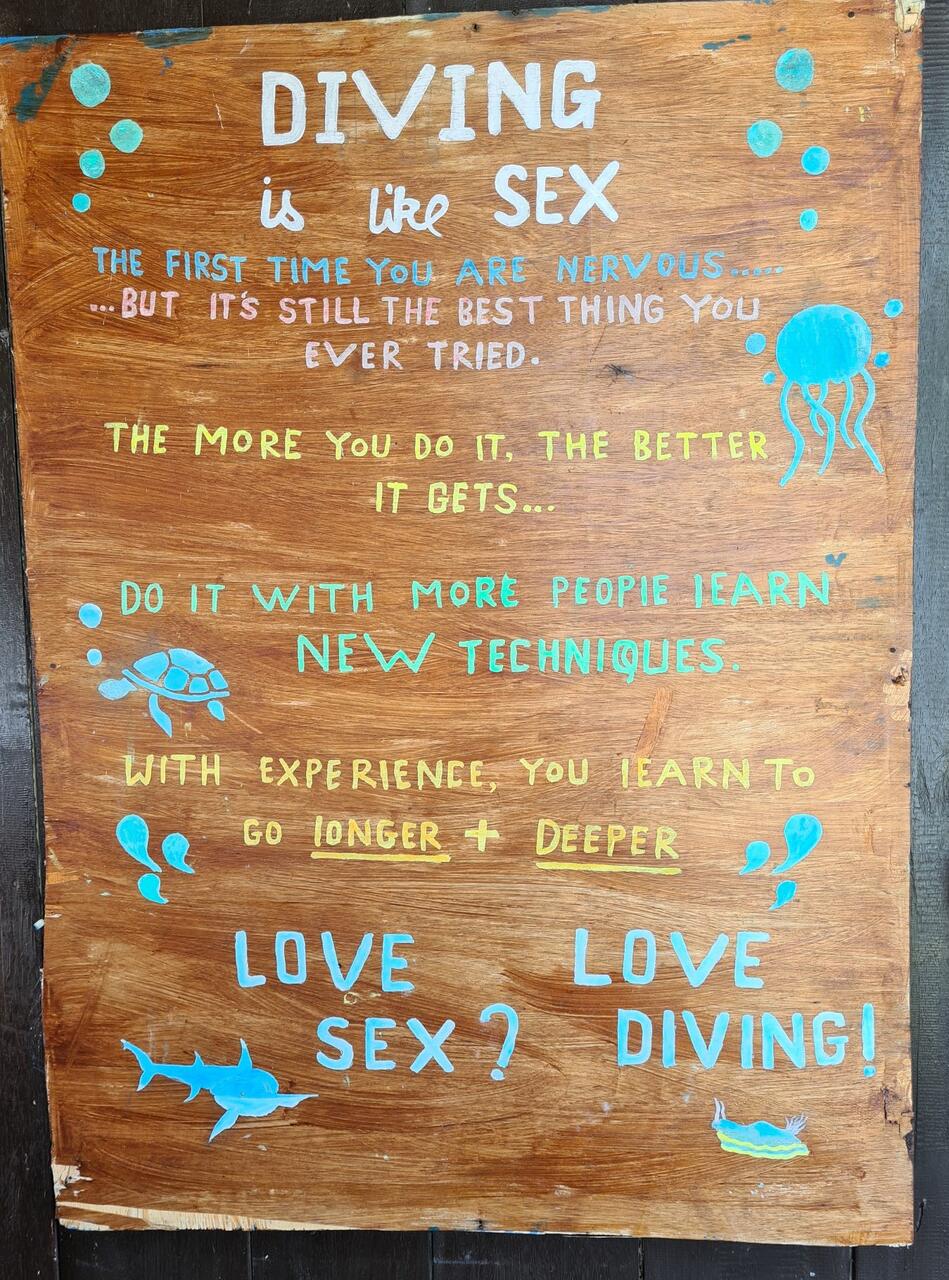 DIVING
is like SEX
THE FIRST TIME YOU ARE NERVOUS.....
...BUT IT'S STILL THE BEST THING YOU
EVER TRIED.
THE MORE YOU DO IT, THE BETTER
IT GETS...
DO IT WITH MORE PEOPlE lEARN
NEW TECHNIQUES.
WITH EXPERIENCE, YOU lEARN TO
GO lONGER + DEEPER
LOVE LOVE
SEX? DIVING!